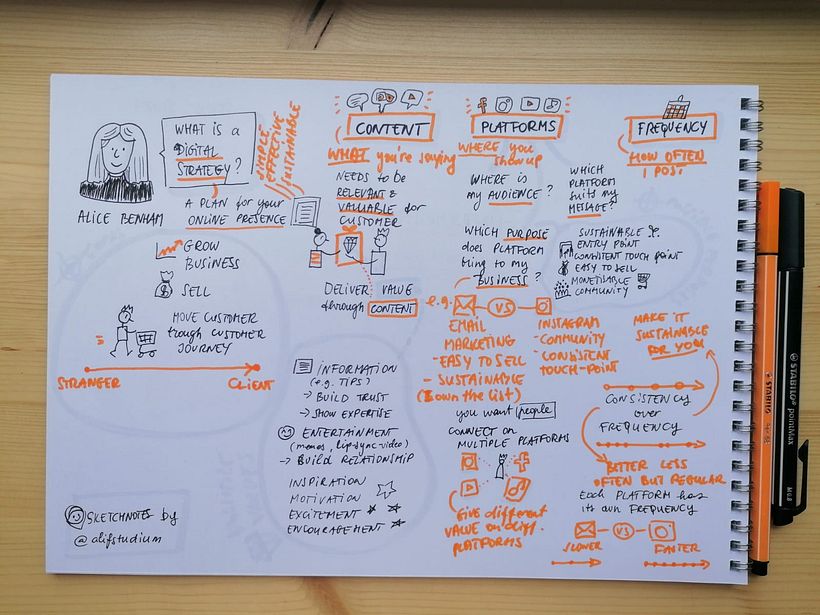 WHAT IS A
DIGITAL
STRATEGY?
SIMPLE
EFFECTIVE
SUSTAINABLE
ALICE BENHAM
A PLAN for your
ONLINE PRESENCE
GROW
BUSINESS
$
SELL
MOVE CUSTOMER
trough CUSTOMER
JOURNEY
STRANGER
CLIENT
SKETCHNOTES by
@alifstudium
CONTENT
WHAT you're saying
NEEDS to be
RELEVANT &
VALUABLE for
CUSTOMER
DELIVER VALUE
through CONTENT
INFORMATION
(e.g. TIPS)
→ BUILD TRUST
→ SHOW EXPERTISE
ENTERTAINMENT
(memes, lip-sync-video)
→ BUILD RELATIONSHIP
INSPIRATION
MOTIVATION
EXCITEMENT
ENCOURAGEMENT
PLATFORMS
WHERE you
show up
WHERE is
my AUDIENCE?
WHICH
PLATFORM
suits my
MESSAGE?
WHICH PURPOSE
does PLATFORM
bring to my
BUSINESS?
SUSTAINABLE
ENTRY POINT
CONSISTENT TOUCH POINT
EASY to SELL
MONETISABLE
COMMUNITY
e.g.
VS
EMAIL
MARKETING
- EASY TO SELL
- SUSTAINABLE
(I own the list)
INSTAGRAM
- COMMUNITY
- CONSISTENT
TOUCH-POINT
you want people
CONNECT on
MULTIPLE PLATFORMS
GIVE different
VALUE on diff.
PLATFORMS
FREQUENCY
HOW OFTEN
I POST
MAKE IT
SUSTAINABLE
FOR YOU
CONSISTENCY
over
FREQUENCY
BETTER LESS
OFTEN BUT REGULAR
Each PLATFORM has
its own FREQUENCY
VS
SLOWER
FASTER
STABILO
STABILO pointMax